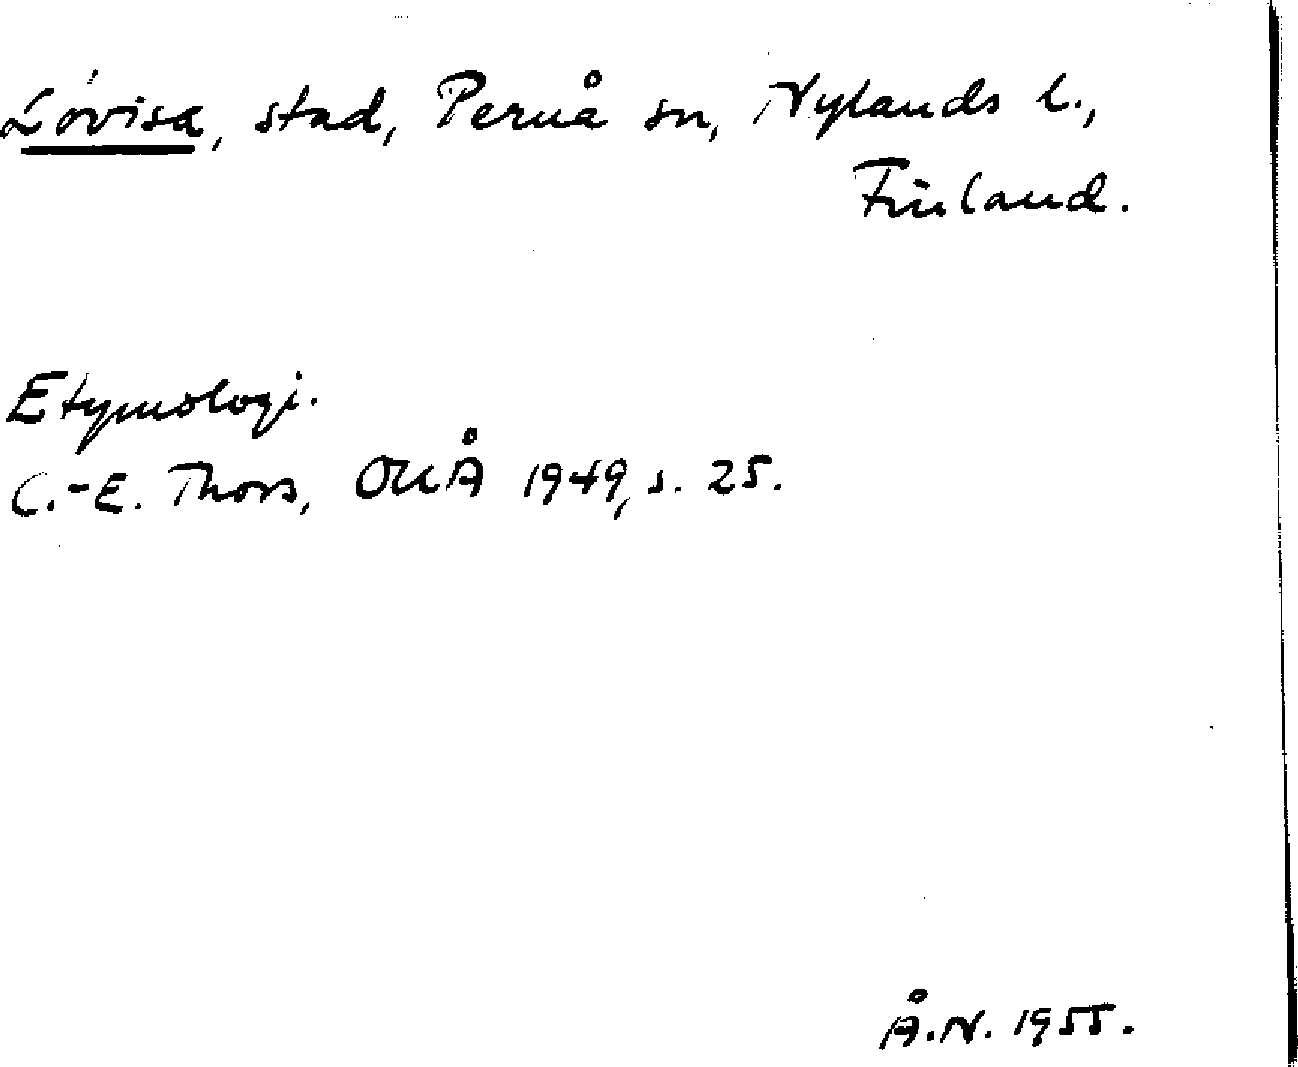 Lovisa, stad, Pernå sn, Nylands l.,
Finland.
Etymologi.
C.-E. Thors, OUÅ 1949, s. 25.
Å.N. 1955.